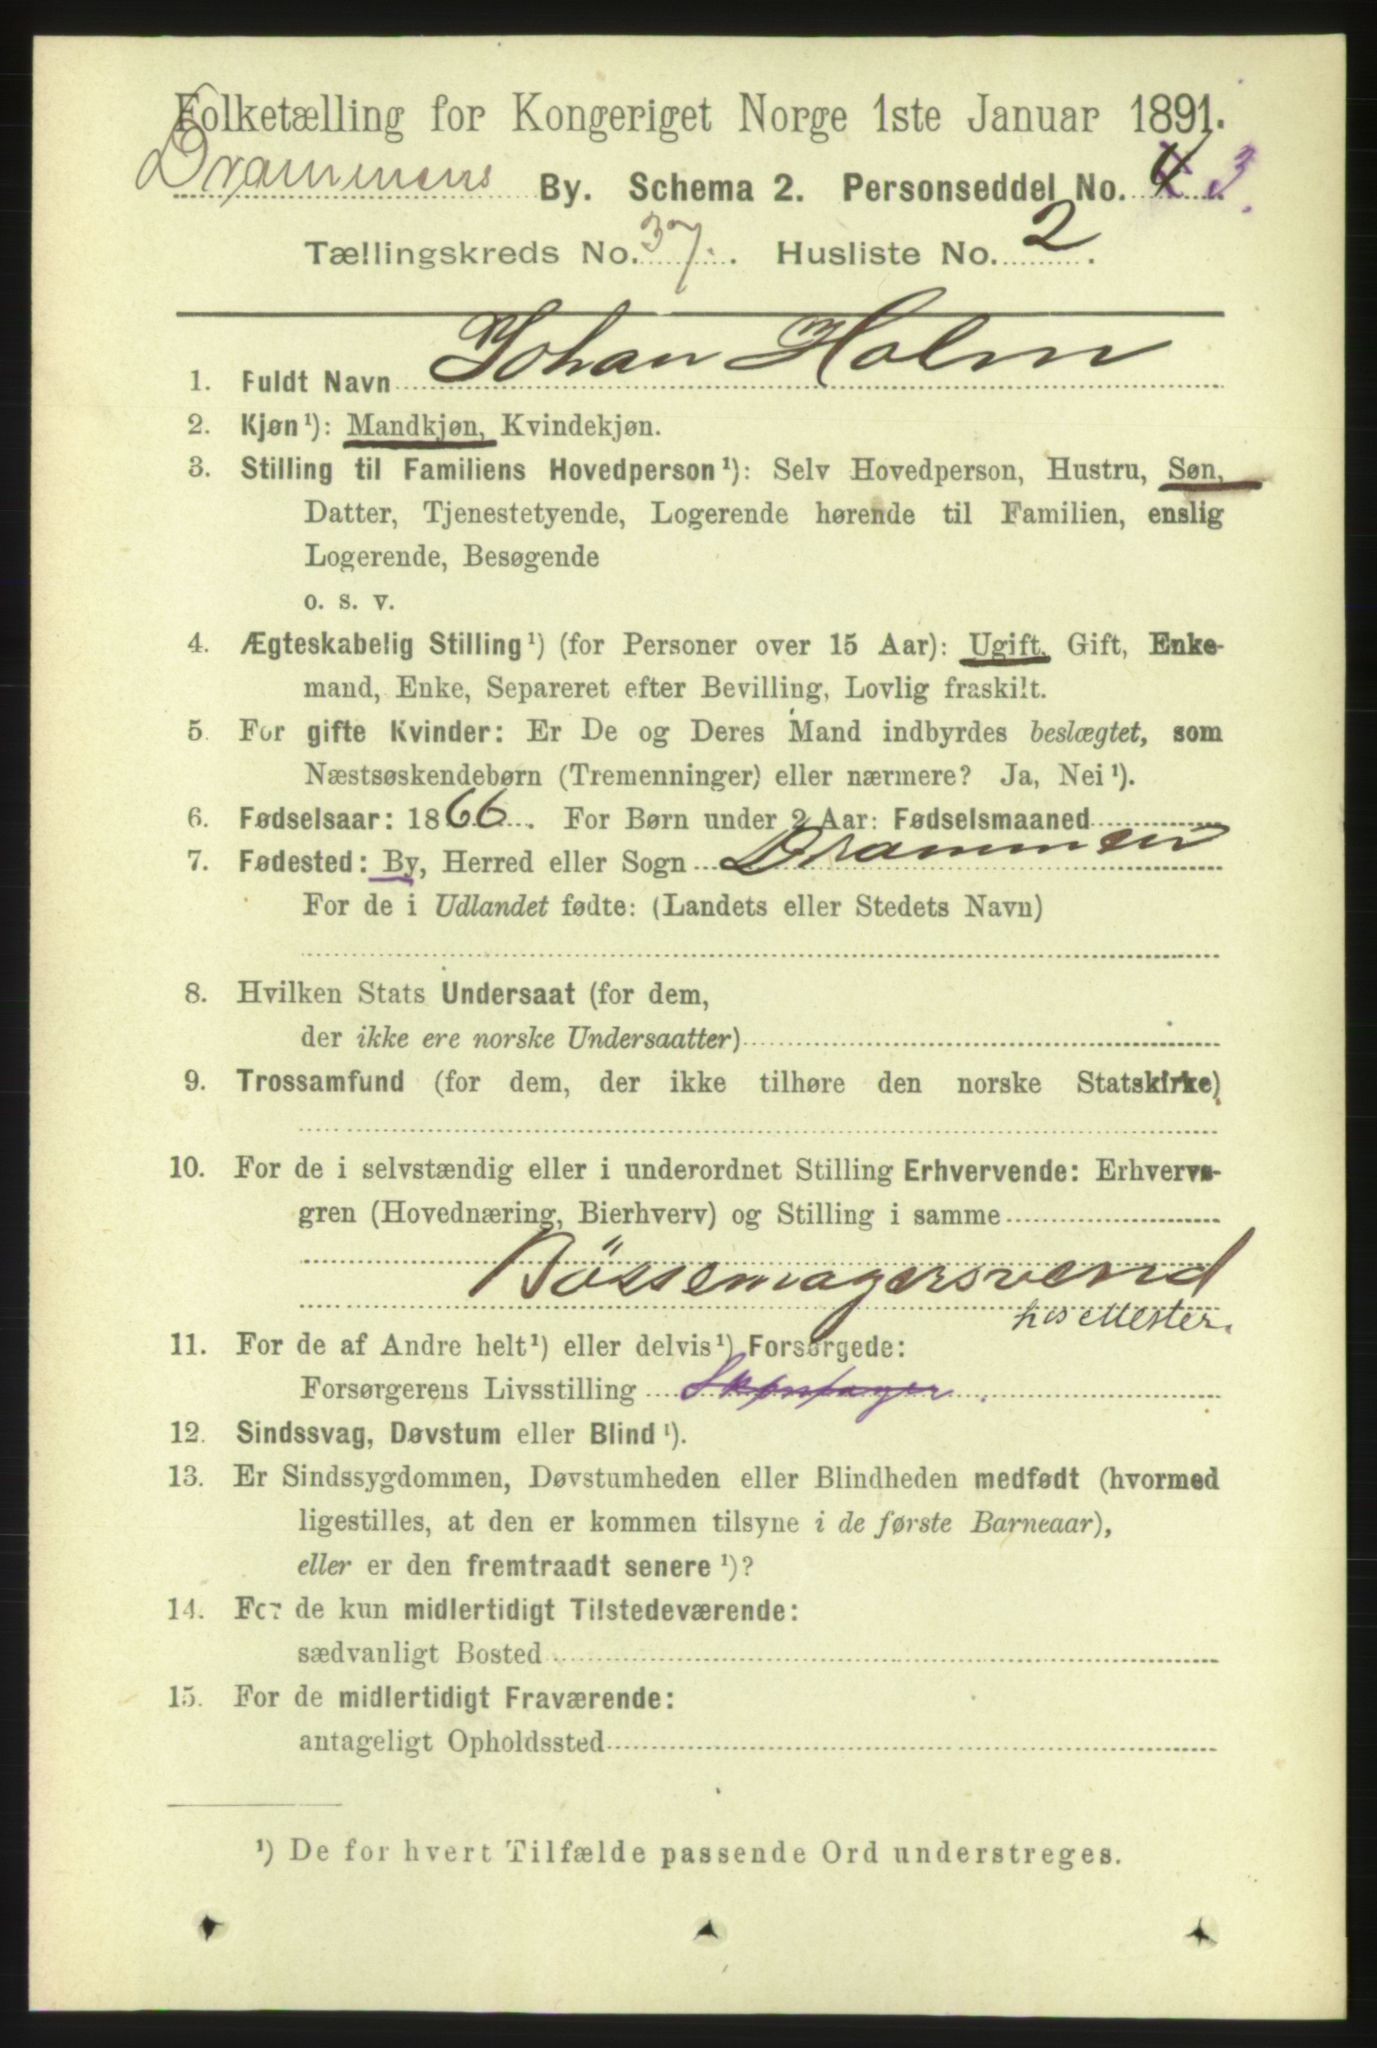 Folketælling for Kongeriget Norge 1ste Januar 1891.
Drammens By. Schema 2. Personseddel No. 4 3.
Tællingskreds No. 37. Husliste No. 2.
1. Fuldt Navn Johan Holm
2. Kjøn¹): Mandkjøn, Kvindekjøn.
3. Stilling til Familiens Hovedperson¹): Selv Hovedperson, Hustru, Søn,
Datter, Tjenestetyende, Logerende hørende til Familien, enslig
Logerende, Besøgende
o. s. v.
4. Ægteskabelig Stilling¹) (for Personer over 15 Aar): Ugift, Gift, Enke-
mand, Enke, Separeret efter Bevilling, Lovlig fraskilt.
5. For gifte Kvinder: Er De og Deres Mand indbyrdes beslægtet, som
Næstsøskendebørn (Tremenninger) eller nærmere? Ja, Nei¹).
6. Fødselsaar: 1866. For Børn under 2 Aar: Fødselsmaaned
7. Fødested: By, Herred eller Sogn Drammen
For de i Udlandet fødte: (Landets eller Stedets Navn)
8. Hvilken Stats Undersaat (for dem,
der ikke ere norske Undersaatter)
9. Trossamfund (for dem, der ikke tilhøre den norske Statskirke)
10. For de i selvstændig eller i underordnet Stilling Erhvervende: Erhvervs-
gren (Hovednæring, Bierhverv) og Stilling i samme
Bössemagersvend
hos Mester.
11. For de af Andre helt¹) eller delvis¹) Forsørgede:
Forsørgerens Livsstilling
12. Sindssvag, Døvstum eller Blind¹).
13. Er Sindssygdommen, Døvstumheden eller Blindheden medfødt (hvormed
ligestilles, at den er kommen tilsyne i de første Barneaar),
eller er den fremtraadt senere¹)?
14. For de kun midlertidigt Tilstedeværende:
sædvanligt Bosted
15. For de midlertidigt Fraværende:
antageligt Opholdssted
¹) De for hvert Tilfælde passende Ord understreges.